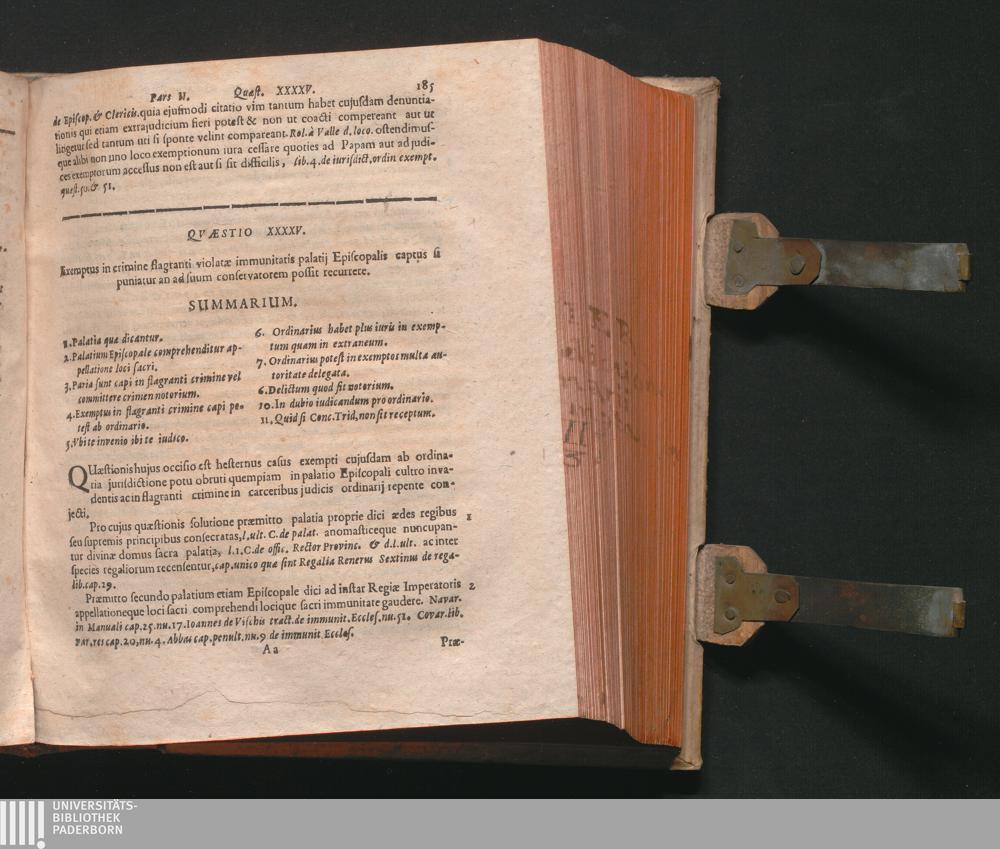 Pars II. Quæst. XXXXV. 185
de Episcop. & Clericis. quia ejusmodi citatio vim tantum habet cujusdam denuntia-
tionis qui etiam extrajudicium fieri potest & non ut coacti compereant aut ut
litigetur sed tantum uti si sponte velint compareant. Rol. à Valle d. loco. ostendimus-
que alibi non uno loco exemptionum iura cessare quoties ad Papam aut ad judi-
ces exemptorum accessus non est aut si sit difficilis, lib. 4. de iurisdict. ordin exempt.
quæst. 50. & 51.
QVÆSTIO XXXXV.
Exemptus in crimine flagranti violatæ immunitatis palatij Episcopalis captus si
puniatur an ad suum conservatorem possit recurrere.
SUMMARIUM.
1. Palatia quæ dicantur.
2. Palatium Episcopale comprehenditur ap-
pellatione loci sacri.
3. Paria sunt capi in flagranti crimine vel
committere crimen notorium.
4. Exemptus in flagranti crimine capi po-
test ab ordinario.
5. Vbi te invenio ibi te iudico.
6. Ordinarius habet plus iuris in exemp-
tum quam in extraneum.
7. Ordinarius potest in exemptos multa au-
toritate delegata.
6. Delictum quod sit notorium.
10. In dubio iudicandum pro ordinario.
11. Quid si Conc. Trid. non sit receptum.
QUæstionis hujus occisio est hesternus casus exempti cujusdam ab ordina-
ria jurisdictione potu obruti quempiam in palatio Episcopali cultro inva-
dentis ac in flagranti crimine in carceribus judicis ordinarij repente con-
jecti.
Pro cujus quæstionis solutione præmitto palatia proprie dici ædes regibus 1
seu supremis principibus consecratas, l. ult. C. de palat. anomasticeque nuncupan-
tur divinæ domus sacra palatia, l. 1. C. de offic. Rector Provinc. & d. l. ult. ac inter
species regaliorum recensentur, cap. unico quæ sint Regalia Renerus Sextinus de rega-
lib. cap. 29.
Præmitto secundo palatium etiam Episcopale dici ad instar Regiæ Imperatoris 2
appellationeque loci sacri comprehendi locique sacri immunitate gaudere. Navar.
in Manuali cap. 25. nu. 17. Ioannes de Vischis tract. de immunit. Eccles. nu. 51. Covar. lib.
var. res cap. 20, nu. 4. Abbas cap. penult. nu. 9 de immunit. Eccles.
Aa Præ-
UNIVERSITÄTS-
BIBLIOTHEK
PADERBORN